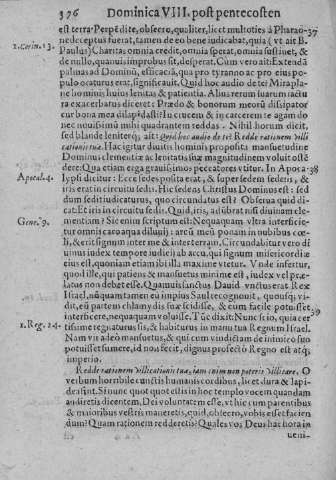 376 Dominica VIII. post pentecosten
est terra. Perpédite, obsecro, qualiter, licet multoties à Pharao- 37
ne deceptus fuerat, tamen de eo bene iudicabat, quia (vt ait B.
1.Corin.13. Paulus) Charitas omnia credit, omnia sperat, omnia sustinet, &
de nullo, quanuis improbus sit, desperat. Cum vero ait: Extendā
palmas ad Dominū, efficaciā, qua pro tyranno ac pro eius po-
pulo oraturus erat, significauit. Quid hoc audio de te? Mira pla-
ne hominis huius lenitas & patientia. Alius rerum suarum iactu
ra exacerbatus diceret: Prædo & bonorum meorū dissipator
cur bona mea dilapidasti? Iu crucem & in carcerem te agam do
nec nouissimū mihi quadrantem reddas. Nihil horum dicit,
sed blande leniterq; ait: Quid hoc audio de te? Redde rationem villi
cationis tuæ. Hac igitur diuitis hominis proposita mansuetudine
Dominus clementiæ ac lenitatis suæ magnitudinem voluit ostē
dere: Qua etiam erga grauissimos peccatores vtitur. In Apoca- 38
Apocal.4. lypsi dicitur: Ecce sedes posita erat, & super sedem sedens, &
iris erat in circuitu sedis. Hic sedens Christus Dominus est: sed
dum sedit iudicaturus, quo circundatus est? Obserua quid di-
cat: Et iris in circuitu sedis. Quid, iris, adūbrat nisi diuinam cle-
mentiam? Sic enim scriptum est: Nequaquam vltra interficie-
Gene.9. tur omnis caro aqua diluuij: arcū meū ponam in nubibus cœ-
li, & erit signum inter me & inter terram. Circundabitur vero di
uinus iudex tempore iudicij ab arcu, qui signum misericordiæ
eius est, quoniam etiam ibi illa maxime vtetur. Vnde infertur,
quod ille, qui patiens & mansuetus minime est, iudex vel præ-
latus non debet esse. Quamuis sanctus Dauid vnctus erat Rex
Israel, nūquam tamen eu impius Saul recognouit, quousq; vi-
dit, eū partem chlamydis suæ scidisse, & cum facile potuisset 39
interficere, nequaquam voluisse. Tūc dixit: Nunc scio, quia cer
1.Reg.24. tissime regnaturus sis, & habiturus in manu tua Regnum Israel.
Nam vir adeò mansuetus, & qui cum vindictam de inimico suo
potuisset sumere, id non fecit, dignus profectò Regno est atq;
imperio.
Redde rationem villicationis tuæ, iam enim non poteris villicare. O
verbum horribile cunctis humanis cordibus, licet dura & lapi-
dea sint! Si nunc quot quot estis in hoc templo vocem quandam
ansiretis dicentem. Dei voluntatem esse, vt hic cum parentibus
& maioribus vestris maneretis, quid, obsecro, vobis esset facien
dum? Quam rationem redderetis? Quales vos Deus hac hora in
ueni-